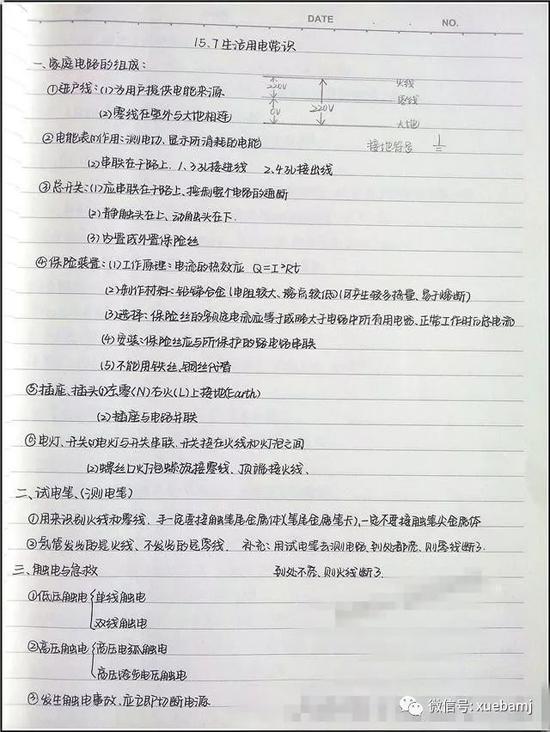 DATE
NO.
15.7 生活用电常识
一、家庭电路的组成：
①进户线：(1)为用户提供电能来源
220V
220V
火线
零线
(2)零线在室外与大地相连
0V
大地
②电能表(1)作用：测电功、显示所消耗的电能
接地符号
(2)串联在干路上. 1、3孔接进线 2、4孔接出线
③总开关：(1)应串联在干路上、控制整个电路的通断
(2)静触头在上、动触头在下.
(3)内置或外置保险丝
④保险装置：(1)工作原理：电流的热效应 Q=I²Rt
(2)制作材料：铅锑合金(电阻较大、熔点较低)(可产生较多热量、易于熔断)
(3)选择：保险丝的额定电流应等于或略大于电路中所有用电器、正常工作时的总电流)
(4)安装：保险丝应与所保护的电路串联
(5)不能用铁丝、铜丝代替
⑤插座、插头(1)左零(N)右火(L)上接地(Earth)
(2)插座与电路并联
⑥电灯、开关(1)电灯与开关串联、开关接在火线和灯泡之间
(2)螺丝口灯泡螺旋接零线、顶端接火线、
二、试电笔、(测电笔)
①用来识别火线和零线. 手一定要接触笔尾金属体(笔尾金属笔卡),一定不要接触笔尖金属体
②氖管发光的是火线、不发光的是零线. 补充：用试电笔去测电路、到处都亮、则零线断了.
三、触电与急救
到处不亮、则火线断了.
①低压触电{单线触电
双线触电
②高压触电{高压电弧触电
高压跨步电压触电
③发生触电事故、应立即切断电源
微信号：xuebamj